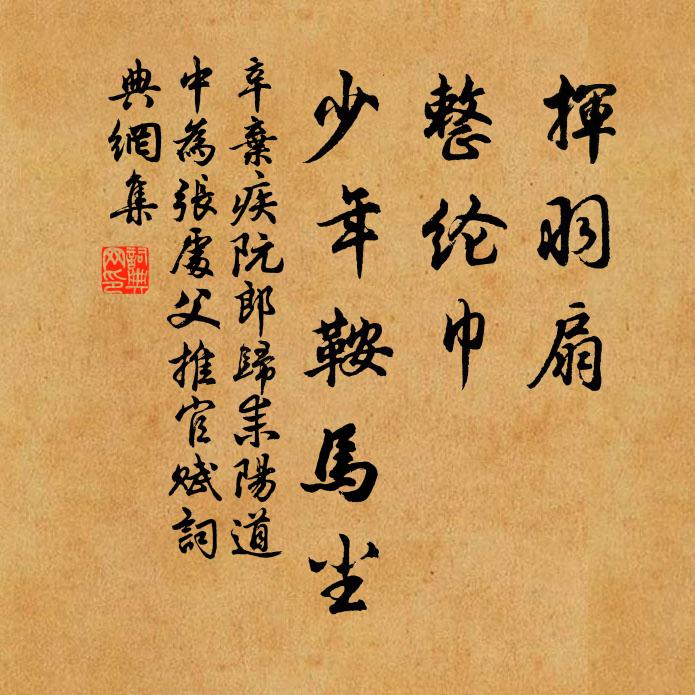 揮羽扇
整纶巾
少年鞍馬尘
辛棄疾阮郎歸耒陽道
中為張處父推官赋詞
典網集
詞典
网印